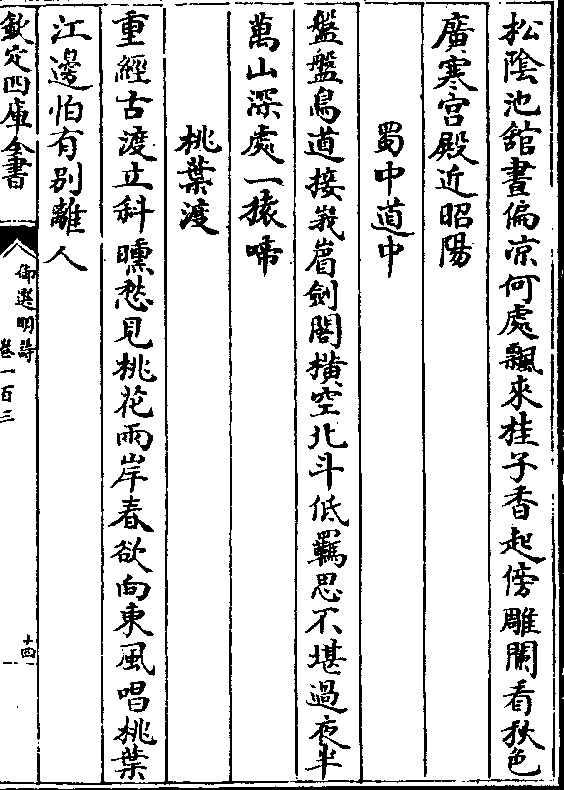 松陰池舘晝偏凉何處飄來桂子香起傍雕闌看秋色
廣寒宫殿近昭陽
蜀中道中
盤盤鳥道接峩眉劍閣横空北斗低羈思不堪過夜半
萬山深處一猿啼
桃葉渡
重經古渡正斜曛愁見桃花兩岸春欲向東風唱桃葉
江邊怕有别離人
欽定四庫全書
御選明詩
卷一百三
十四